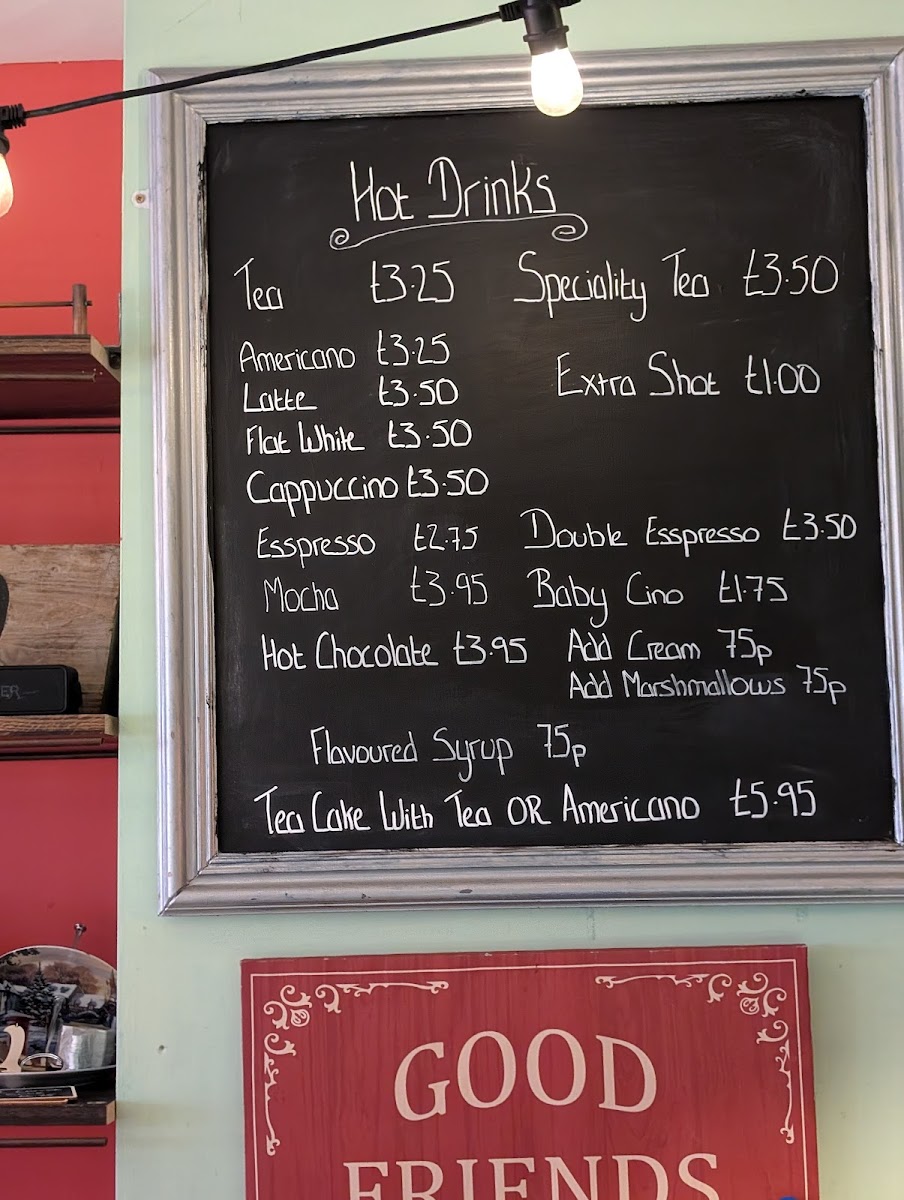 Hot Drinks
Tea £3.25 Speciality Tea £3.50
Americano £3.25
Latte £3.50 Extra Shot £1.00
Flat White £3.50
Cappuccino £3.50
Esspresso £2.75 Double Esspresso £3.50
Mocha £3.95 Baby Cino £1.75
Hot Chocolate £3.95 Add Cream 75p
Add Marshmallows 75p
Flavoured Syrup 75p
Tea Cake With Tea OR Americano £5.95
GOOD
FRIENDS